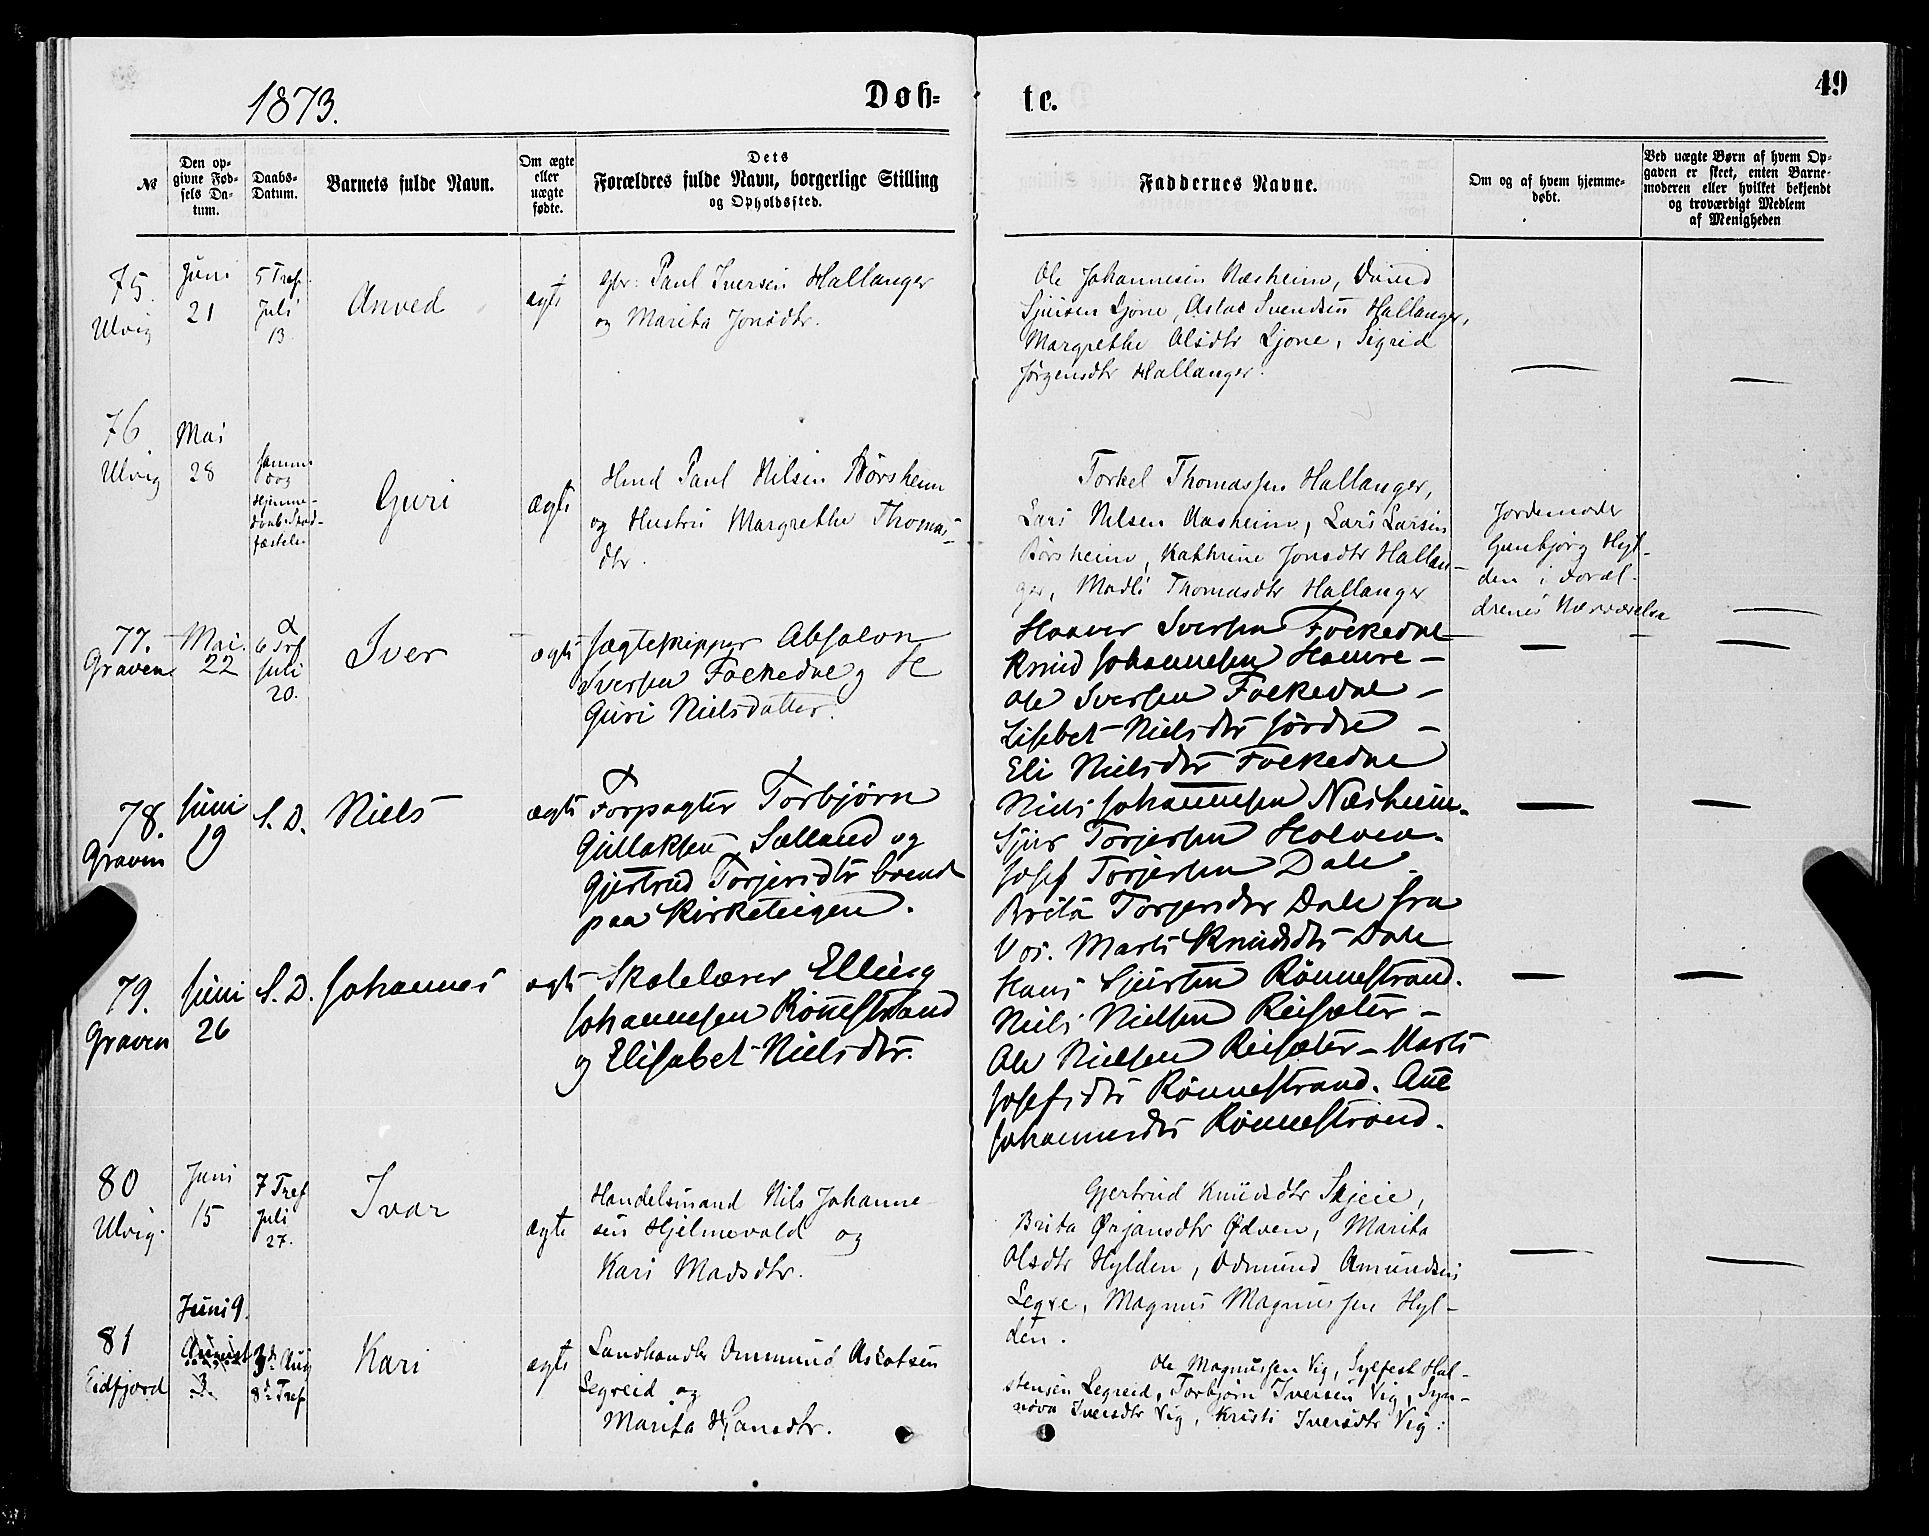 1873.
Døb-
te.
49
№
Den op-
givne Fød-
sels Da-
tum.
Daabs-
Datum.
Barnets fulde Navn.
Om ægte
eller
uægte
fødte.
Dets
Forældres fulde Navn, borgerlige Stilling
og Opholdssted.
Faddernes Navne.
Om og af hvem hjemme-
døbt.
Ved uægte Børn af hvem Op-
gaven er skeet, enten Barne-
moderen eller hvilket bekjendt
og troværdigt Medlem
af Menigheden
75.
Ulvig
Juni
21
5 Tref.
Juli
13
Anved
ægte
Gbr: Paul Iversen Hallanger
og Marita Jonsdtr.
Ole Johannesen Næsheim,
Sjursen Ljone, Aslac Svendsen Hallanger,
Margrethe Olsdtr Ljone, Sigrid
Jørgensdtr Hallanger.
76
Ulvig
Mai
28
Guri
ægte
Hmd Paul Nilsen Børsheim
og Hustru Margrethe Thomas-
dtr.
Torkel Thomassen Hallanger,
Lars Nilsen Aasheim, Lars Larsen
Børsheim, Kathrine Jonsdtr Hallan-
ger, Madli Thomasdtr Hallanger
Jordemoder
Gunbjørg Hyl-
den i Foræl-
drenes Nærværelse
77.
Graven
Mai.
22
6 Trf
Juli
20.
Iver
ægte
Jægteskipper Absalon
Iversen Folkedal og H
Guri Nielsdatter.
Haaver Iversen Folkedal
Knud Johannesen Hamre –
Ole Iversen Folkedal –
Lisbet Nielsdtr Jørdre –
Eli Nielsdtr Folkedal
78.
Graven
Juni
19
S. D.
Niels
ægte
Forpagter Torbjørn
Gullaksen Sælland og
Gjertrud Torjersdtr boende
paa Kirketeigen.
Niels Johannesen Næsheim.
Sjur Torjersen Holven.
Josef Torjersen Dale.
Brita Torjersdtr Dale fra
Vos. Marta Knudsdtr Dale
79.
Graven
Juni
26
S. D.
Johannes
ægte
Skolelærer Elling
Johannesen Rønnestrand
og Elisabet Nielsdtr.
Hans Sjursen Rønnestrand.
Niels Nielsen Reisæter –
Ole Nielsen Reisæter – Marta
Josefsdtr Rønnestrand. Ane
Johannesdtr Rønnestrand.
80
Ulvig.
Juni
15
7 Tref
Juli
27.
Ivar
ægte
Handelsmand Nils Johanne-
sen Hjelmevold og
Kari Madsdtr.
Gjertrud Knudsdtr Skjeie,
Brita Ørjansdtr Ødven, Marita
Olsdtr Hylden, Odmund Amundsen
Legre, Magnus Magnussen Hyl-
den.
81
Eidfjord
Juni 9.
August
3.
3d Aug
8d Tref
Kari
ægte
Landhandler Ommund Aslaksen
Legreid og
Marita Hansdtr.
Ole Magnussen Vig, Sylfest Hal-
stensen Legreid, Torbjørn Iversen Vig, Syn-
nøva Iversdtr Vig, Kristi Iversdtr Vig.